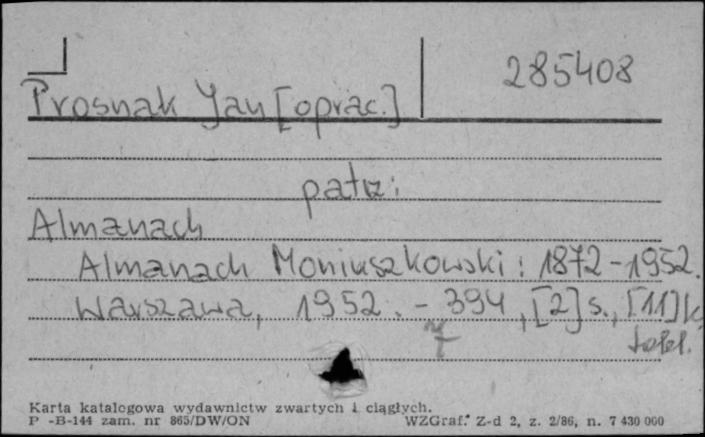 285408
Prosnak Jan [oprac.]
patrz:
Almanach
Almanach Moniuszkowski : 1872-1952.
Warszawa, 1952. - 394, [2] s., [11] k.
tabl.
Karta katalogowa wydawnictw zwartych i ciągłych.
P -B-144 zam. nr 865/DW/ON WZGraf. Z-d 2, z. 2/86, n. 7 430 000